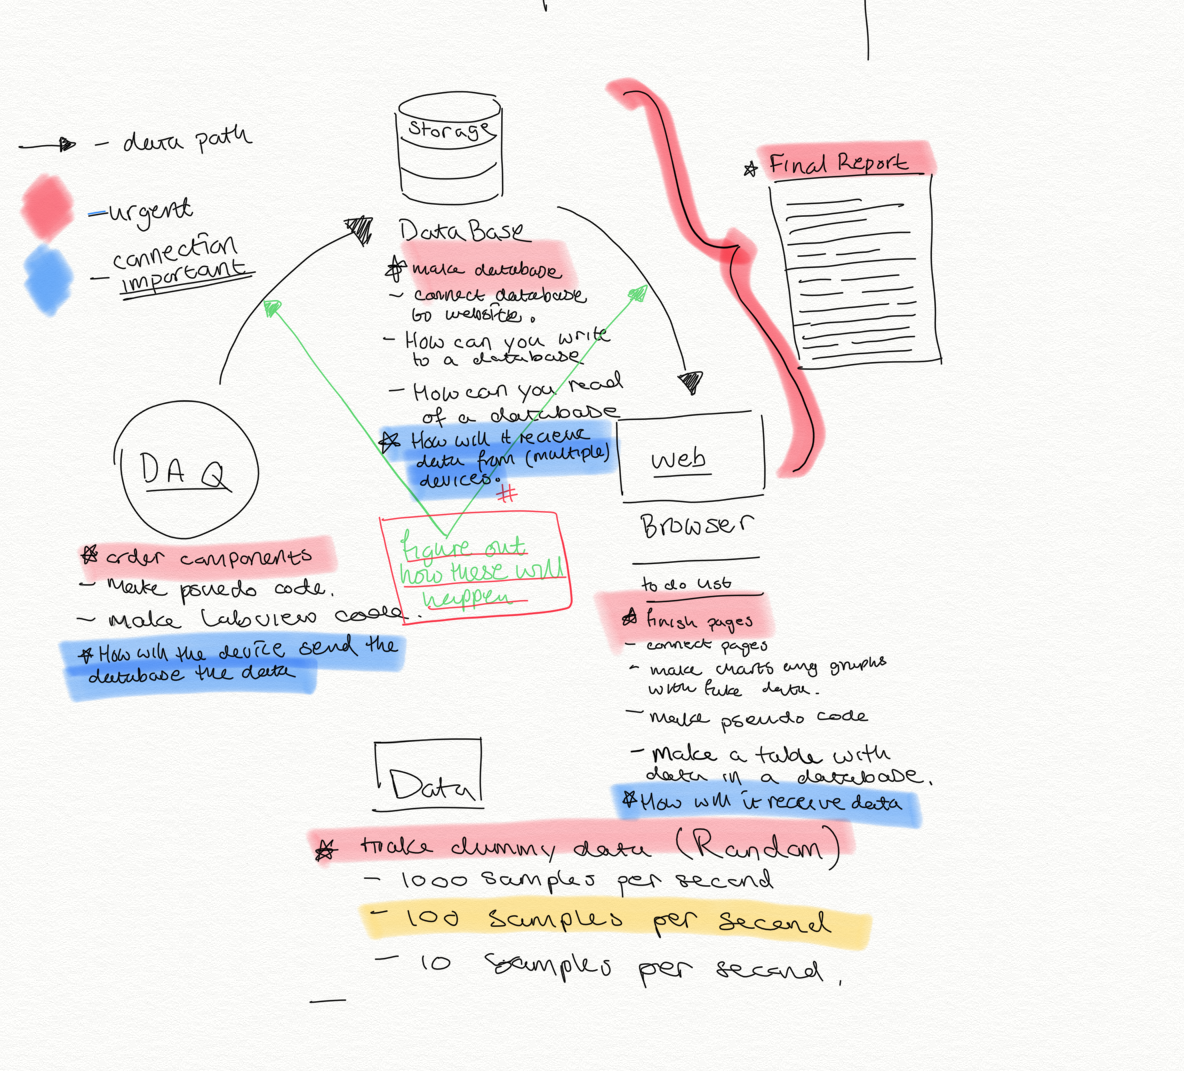 - data path
- urgent
- connection
important
Storage
DataBase
make database
- connect database
to website.
- How can you write
to a database
- How can you read
of a database
How will it recieve
data from (multiple)
devices.
#
figure out
how these will
happen
DAQ
order components
- Make psuedo code.
- Make Labview code.
How will the device send the
database the data
Final Report
web
Browser
to do list
finish pages
- connect pages
- make charts any graphs
with fake data.
- Make pseudo code
- Make a table with
data in a database.
How will it receive data
Data
Make dummy data (Random)
- 1000 samples per second
- 100 samples per second
- 10 samples per second.